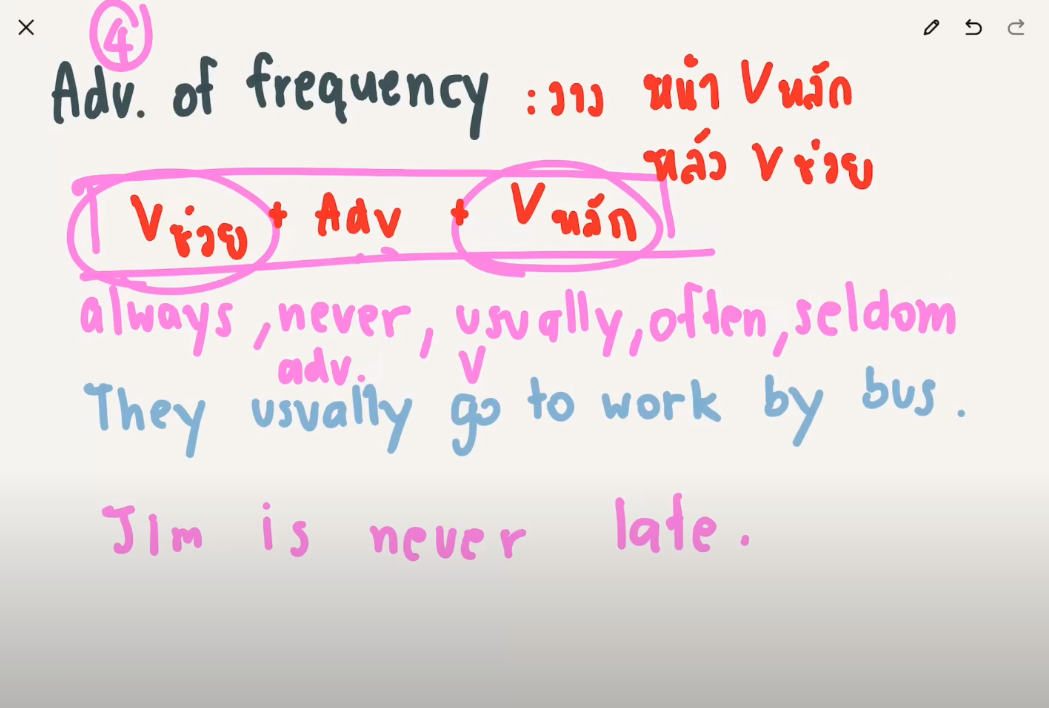 4
Adv. of frequency : วาง หน้า V หลัก
หลัง V ช่วย
V ช่วย + Adv + V หลัก
always, never, usually, often, seldom
adv. V
They usually go to work by bus.
Jim is never late.